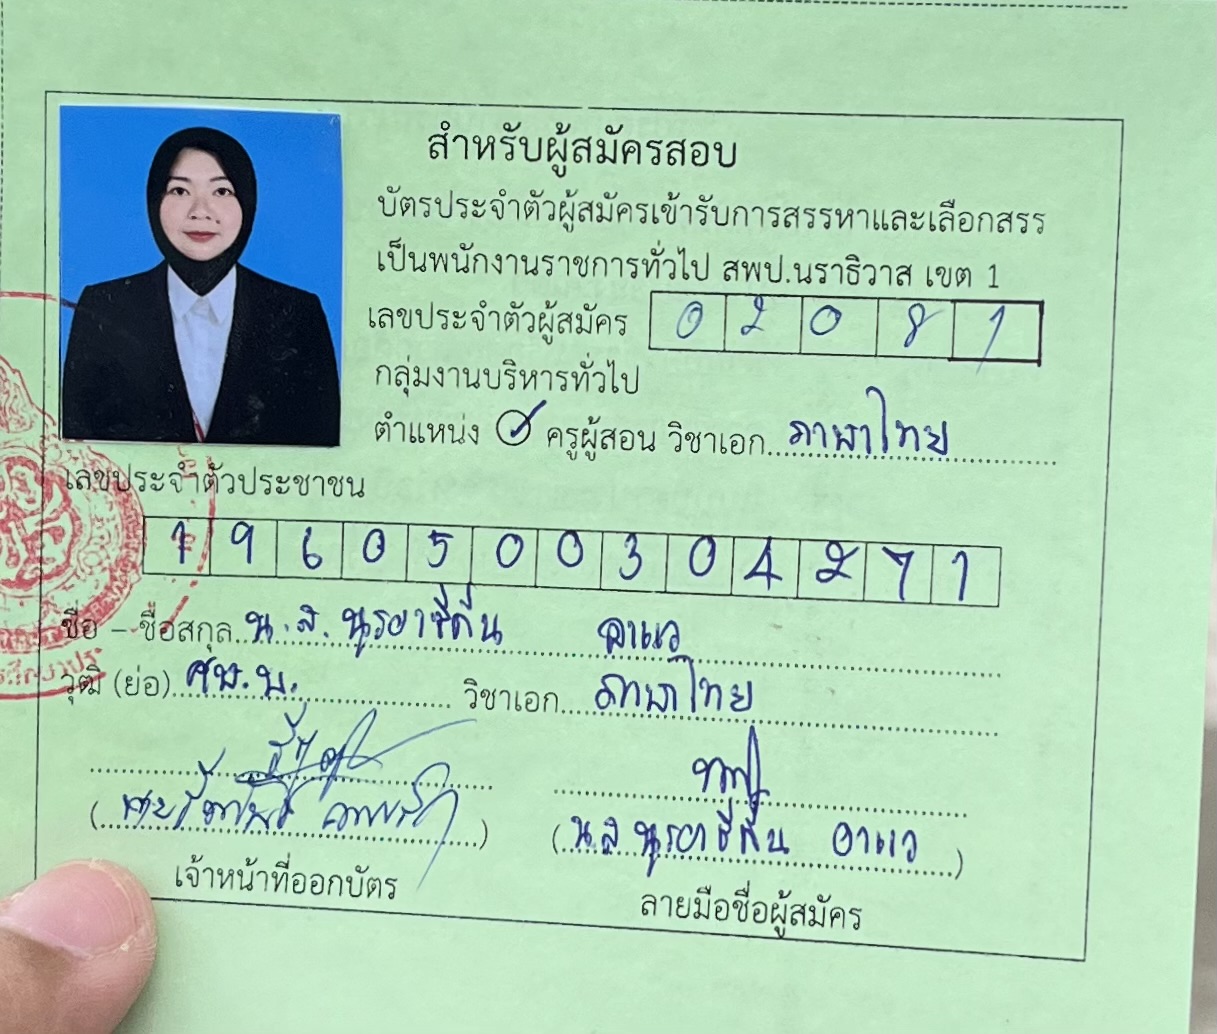 สำหรับผู้สมัครสอบ
บัตรประจำตัวผู้สมัครเข้ารับการสรรหาและเลือกสรร
เป็นพนักงานราชการทั่วไป สพป.นราธิวาส เขต 1
เลขประจำตัวผู้สมัคร 0 2 0 8 1
กลุ่มงานบริหารทั่วไป
ตำแหน่ง ครูผู้สอน วิชาเอก ภาษาไทย
เลขประจำตัวประชาชน
1 9 6 0 5 0 0 3 0 4 2 7 1
ชื่อ – ชื่อสกุล น.ส. นูรอาซีกีน อาแว
วุฒิ (ย่อ) ศษ.บ. วิชาเอก ภาษาไทย
(น.ส. นูรอาซีกีน อาแว)
เจ้าหน้าที่ออกบัตร ลายมือชื่อผู้สมัคร